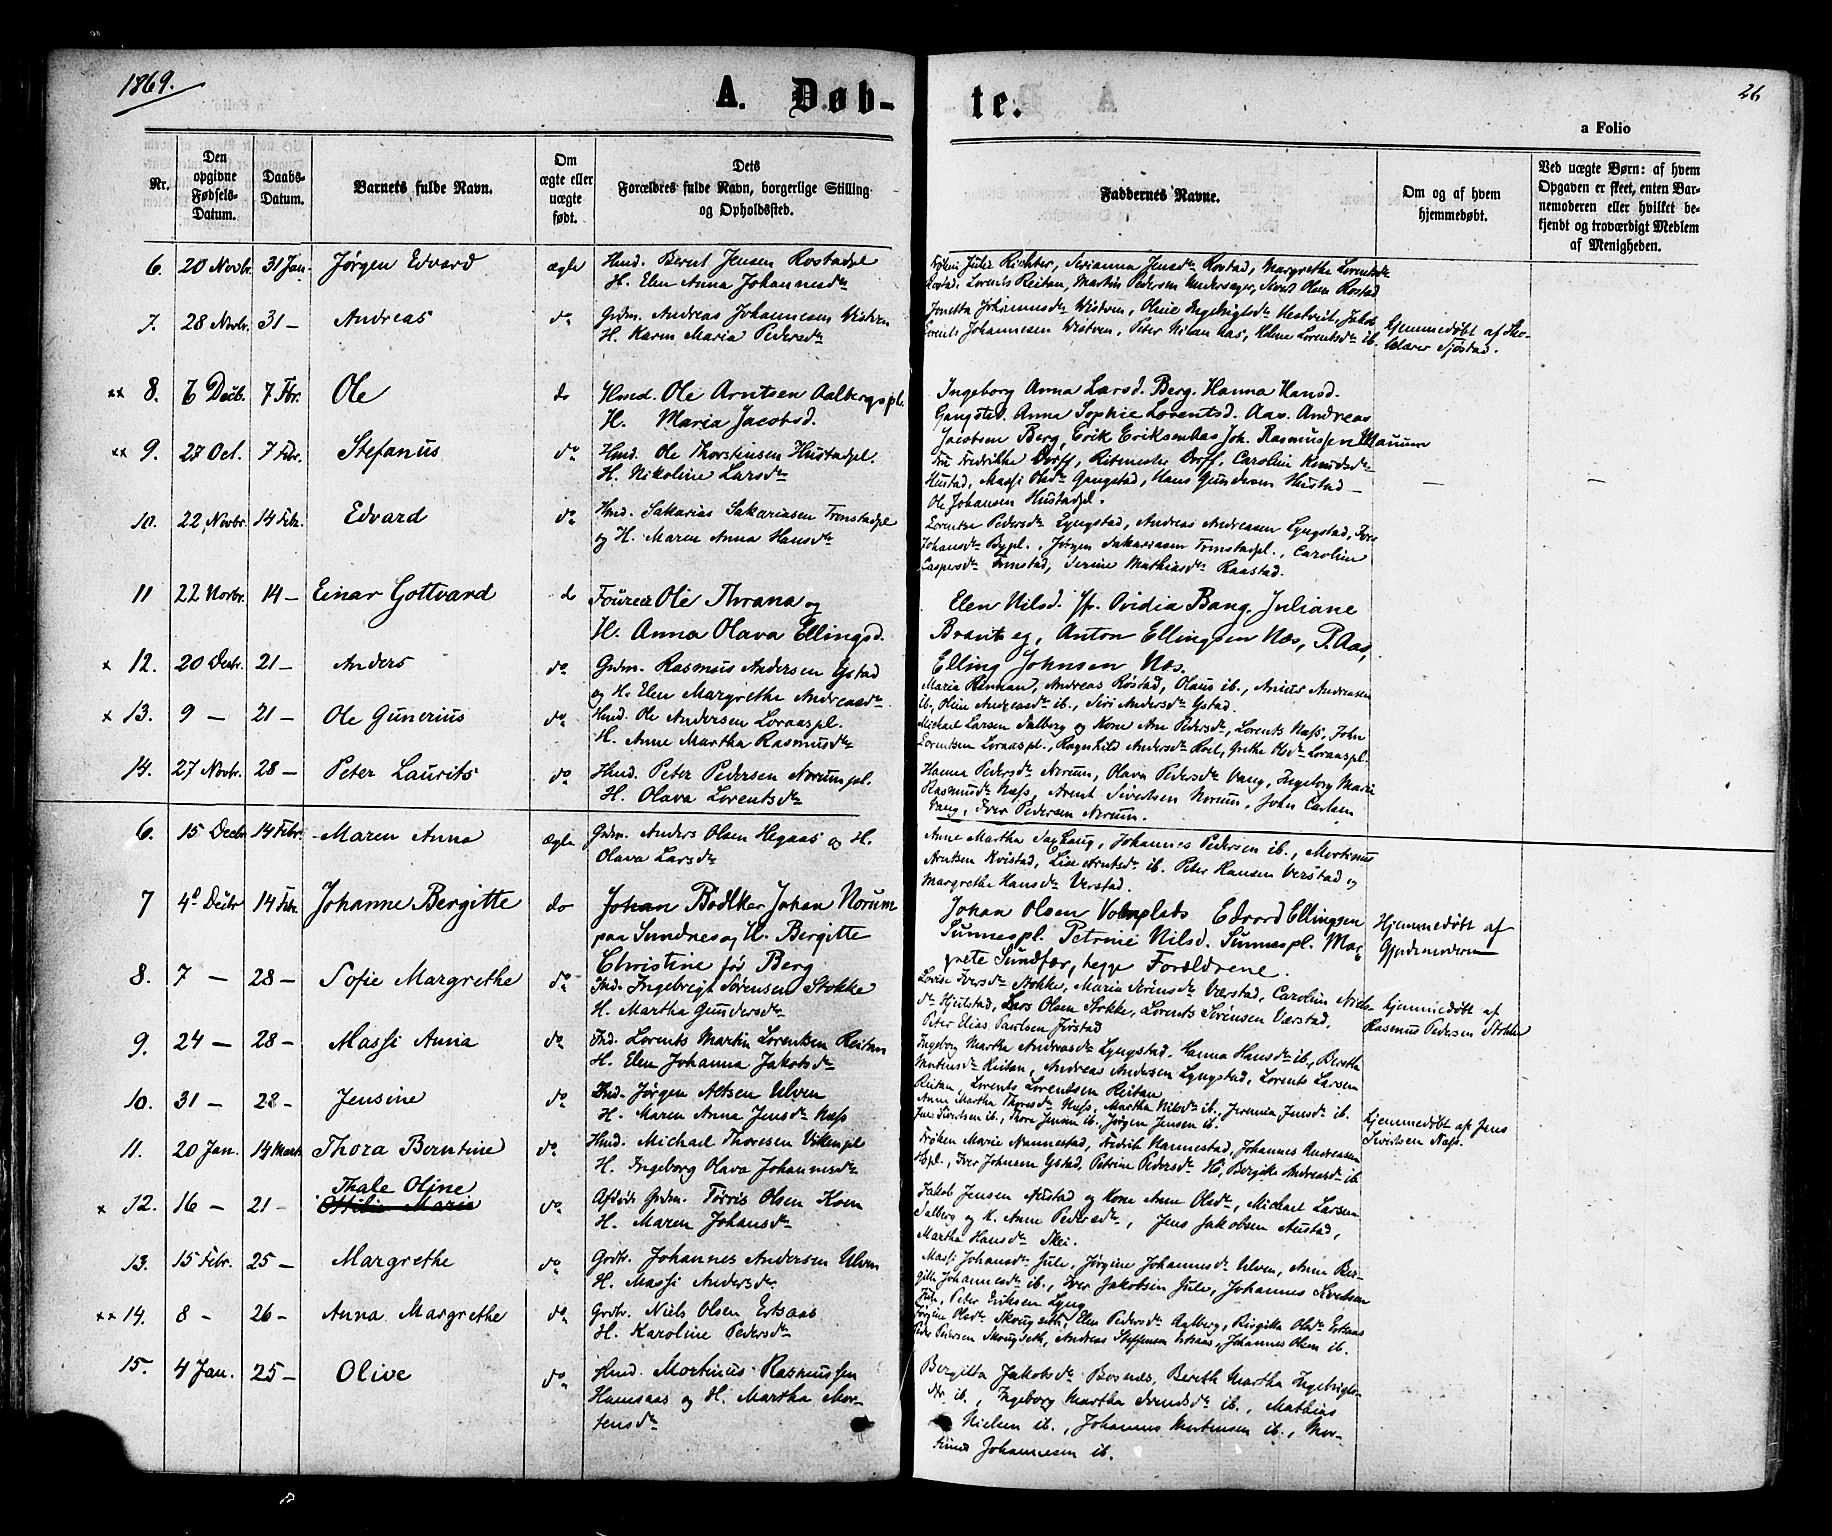 1869.
A. Døb-
te.
26
a Folio
Nr.
Den opgivne Fødsels-Datum.
Daabs-Datum.
Barnets fulde Navn.
Om ægte eller uægte født.
Dets Forældres fulde Navn, borgerlige Stilling og Opholdssted.
Faddernes Navne.
Om og af hvem hjemmedøbt.
Ved uægte Børn: af hvem Opgaven er skeet, enten Bar-nemoderen eller hvilket be-kjendt og troværdigt Medlem af Menigheden.
6. 20 Novbr. 31 Jan. Jørgen Edvard ægte Hmd. Bernt Jensen Rostadpl
H. Elen Anna Johannesdr
Frøken Julie Richter, Serianna Jensdr Rostad, Margrethe Lorentsdr
Rostad, Lorents Reitan, Martin Pedersen Undersager, Sivert Olsen Rostad
7. 28 Novbr. 31 - Andreas do Grdm. Andreas Johannesen Wistven
H. Karen Maria Pedersdr
Jonetta Johannesdr Wistven, Oline Ingebrigtsdr Hestveit, Jakob
Lorents Johannesen Wistven, Peter Nilsen Aas, Helene Lorentsdr ib.
Hjemmedøbt af Sko-
lelærer Tjöstad.
xx 8. 6 Decb. 7 Fbr. Ole do Hmd. Ole Arntsen Aalbergspl.
H. Maria Jacobsd.
Ingeborg Anna Larsd. Berg. Hanna Hansd.
Gangstad. Anna Sophie Lorentsd. Aas. Andreas
Jacobsen Berg, Erik Eriksen Aas Joh. Rasmussen Mauum
xx 9. 27 Oct. 7 Febr. Stefanus do Hmd. Ole Thorstensen Hustadpl.
H. Nikoline Larsdr
Fru Fredrikke Dorff, Ritmester Dorff, Caroline Knudsdr
Hustad, Massi Olsdr Gangstad, Hans Gundersen Hustad -
Ole Johansen Hustadpl.
10. 22 Novbr. 14 Febr. Edvard do Hmd. Sakarias Sakariasen Tronstadpl
og H. Maren Anna Hansdr
Lorentse Pedersdr Lyngstad, Andreas Andreasen Lyngstad, Iver
Johansdr Bypl., Jørgen Sakariasen Tronstadpl., Caroline
Caspersdr Tronstad, Serine Mathiasdr Raastad.
11 22 Novbr. 14 - Einar Gottvard do Foureer Ole Thrana og
H. Anna Olava Ellingsd.
Elen Nilsd. Jfr. Ovidia Bang. Juliane
Brantzeg, Anton Ellingsen Næs, P. Aas,
Elling Johnsen Næs.
x 12. 20 Decbr. 21 - Anders do Grdm. Rasmus Andersen Ystad
og H. Elen Margrethe Andreasdr
Maria Rennan, Andreas Röstad, Olaus ib., Anius Andreasen
ib., Oline Andreasdr ib., Siri Andersdr Ystad.
x 13. 9 - 21 - Ole Gunerius do Hmd. Ole Andersen Loraaspl.
H. Anne Martha Rasmusdr
Michael Larsen Salberg og Kone Ane Pedersdr, Lorents Næss, John
Lorentsen Loraaspl., Ragnhild Andersdr Roel, Grethe Olsdr Loraaspl.
14. 27 Novbr. 28 - Peter Laurits do Hmd. Peter Pedersen Norumpl.
H. Olava Lorentsdr
Hanna Pedersdr Norum, Olava Pedersdr Vang, Ingeborg Maria
Rasmusdr Næss, Arent Sivertsen Norum, John Carlsen
Vang, Iver Pedersen Norum.
6. 15 Decbr 14 Febr. Maren Anna ægte Grdm. Anders Olsen Hegaas og H.
Olava Larsdr
Anne Martha Saxhaug, Johannes Pedersen ib., Mortinus
Arntsen Kvistad, Lise Arntsdr ib. Peter Hansen Verstad og
Margrethe Hansdr Verstad.
7 4d Decbr 14 Febr. Johanne Bergitte do Johan Bödker Johan Norum
paa Sundnes og H. Bergitte
Christine fød Berg
Johan Olsen Volnplads Edvard Ellingsen
Sunnespl. Petrine Nilsd. Sunnespl. Mar
grete Sundfær, begge Forældrene.
Hjemmedøbt af
Gjordemoderen
8. 7 - 28 - Sofie Margrethe do Ind. Ingebrigt Sørensen Stokke
H. Martha Gundersdr
Lovise Iversdr Stokke, Maria Sörensdr Værstad, Caroline Niels-
dr Hjulstad, Lars Olsen Stokke, Lorents Sörensen Værstad,
Peter Elias Paulsen Jørstad
Hjemmedøbt af
Rasmus Pedersen Stokke
9. 24 - 28 - Massi Anna do Ind. Lorents Martin Lorentsen Reitan
H. Elen Johanna Jakobsdr
Ingeborg Martha Andreasdr Lyngstad, Hanna Hansdr ib, Beretha
Martinusdr Reitan, Andreas Andersen Lyngstad, Lorents Larsen
Reitan, Lorents Lorentsen Reitan
10. 31 - 28 - Jensine do Ind. Jørgen Altsen Ulven
H. Maren Anna Jensdr Næss
Anne Martha Thoresdr Næss, Martha Nilsdr ib., Jeremia Jensdr ib.
Jens Sivertsen ib., Thore Jensen ib., Jörgen Jensen ib.
Hjemmedøbt af Jens
Sivertsen Næss.
11. 20 Jan. 14 Marts Thora Berntine do Hmd. Michael Thoresen Vikenpl
H. Ingeborg Olava Johannesdr
Frøken Marie Nannestad, Fredrik Nannestad, Johannes Andreasen
Hpl., Iver Johnsen Ystad, Petrine Pedersdr H., Bergitte Andreasdr ib
x 12. 16 - 21 - Thale Oline
Ottilie Marie do Afskd. Grdm. Torris Olsen Koen
H. Maren Johansdr
Jakob Jensen Austad og Kone Anne Olsdr, Michael Larsen
Salberg og H. Anne Pedersdr, Jens Jakobsen Austad,
Martha Hansdr Skei.
13. 15 Febr. 25 - Margrethe do Grdbr. Johannes Andersen Ulven
H. Massi Andersdr
Massi Johansdr Jule, Jørgine Johannesdr Ulven, Anne Ber-
gitte Johannesdr ib., Iver Jakobsen Jule, Johannes Sivertsen
Jule, Peter Eriksen Lyng
xx 14. 8 - 26 - Anna Margrethe do Grdbr. Niels Olsen Ertsaas
H. Karoline Pedersdr
Jörgine Olsdr Skrugseth, Elen Pedersdr Aalberg, Birgitta Olsdr Ertsaas
Peder Pedersen Skrugseth, Andreas Steffensen Ertsaas, Johannes Olsen ib.
15. 4 Jan. 25 - Olive do Hmd. Mortinus Rasmussen
Hamsaas og H. Martha Mor-
tensdr
Bergitta Jakobsdr Bosnes, Bereth Martha Ingebrigts-
dr ib., Ingeborg Martha Svendsdr ib., Mathias
Nielsen ib., Johannes Mortensen ib., Mor-
tinus Johannesen ib.